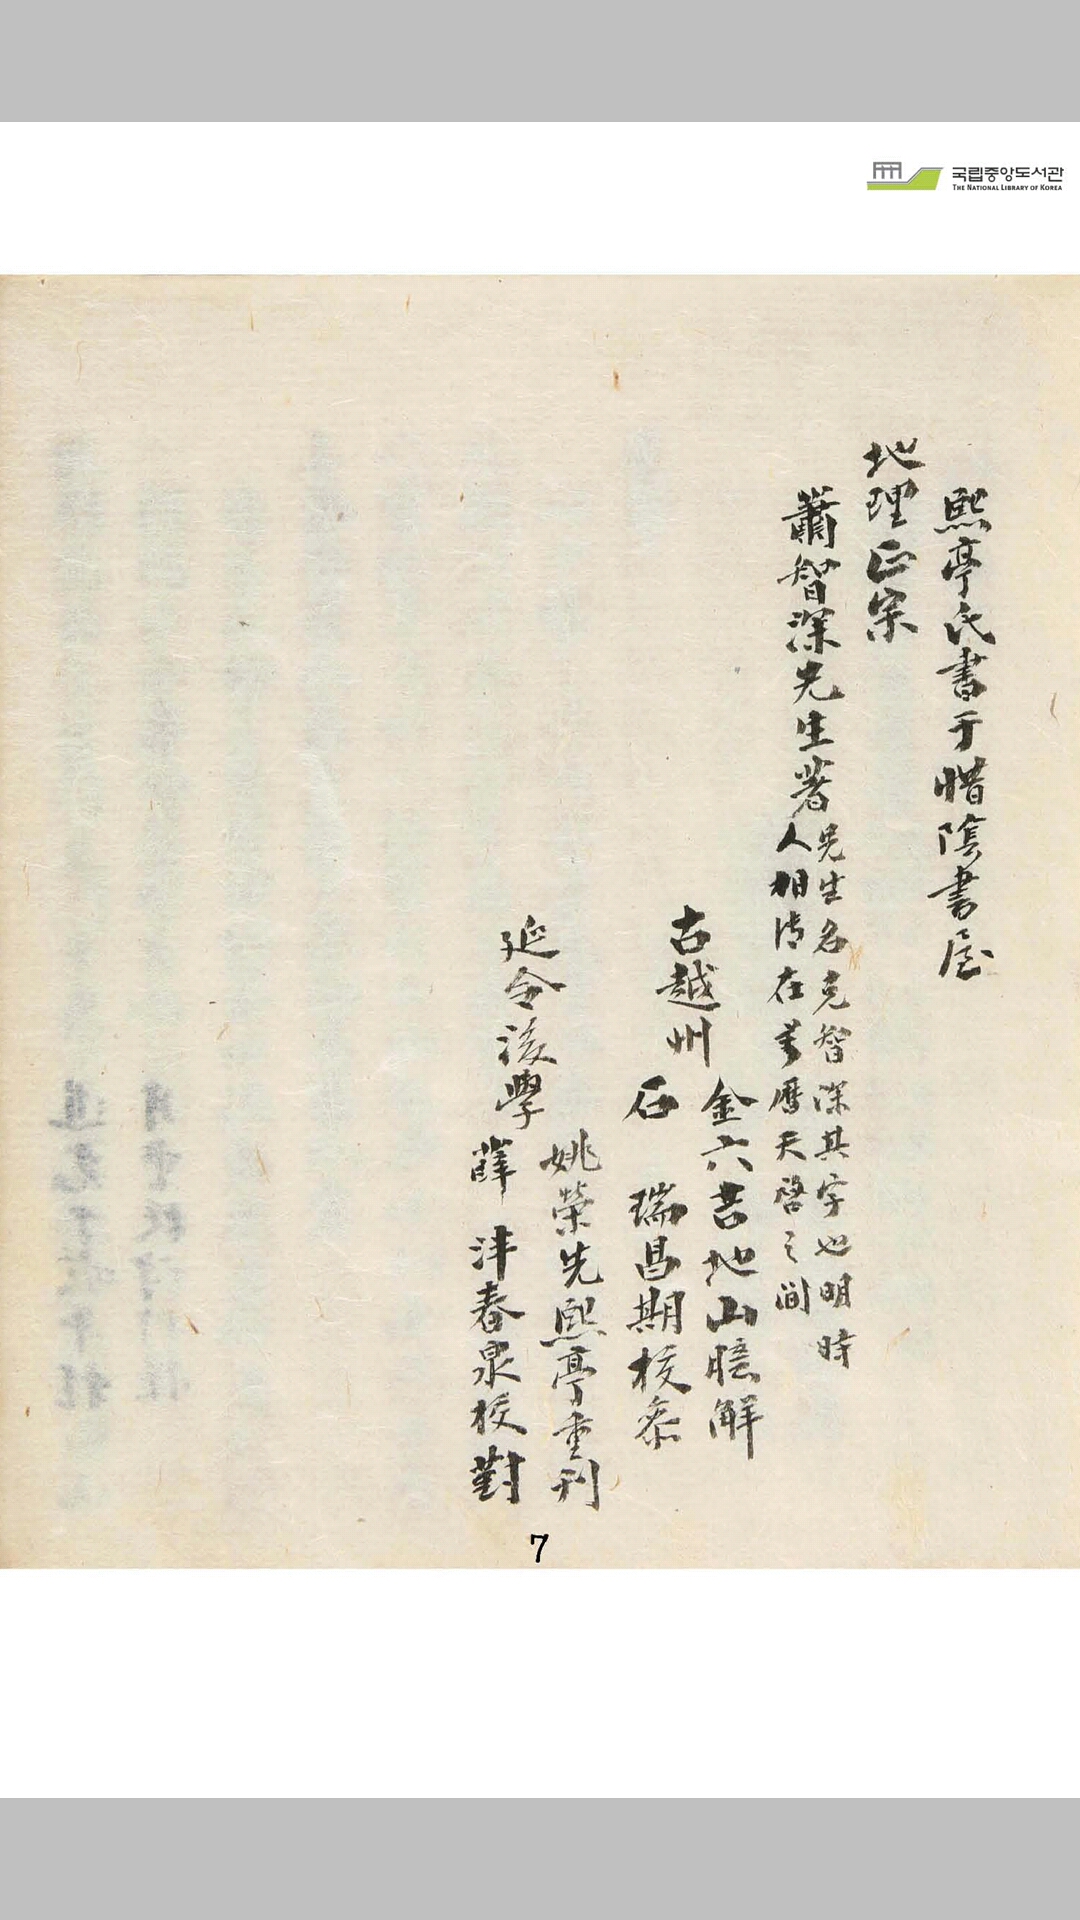 국립중앙도서관
THE NATIONAL LIBRARY OF KOREA
熙亭氏書于惜陰書屋
地理正宗
蕭智深先生著
先生名克智深其字也明時
人相傳在萬曆天啓之間
古越州
金六吉地山臆解
石 瑞昌期校叅
延令後學
姚榮先熙亭重刊
薛 沣春泉校對
7